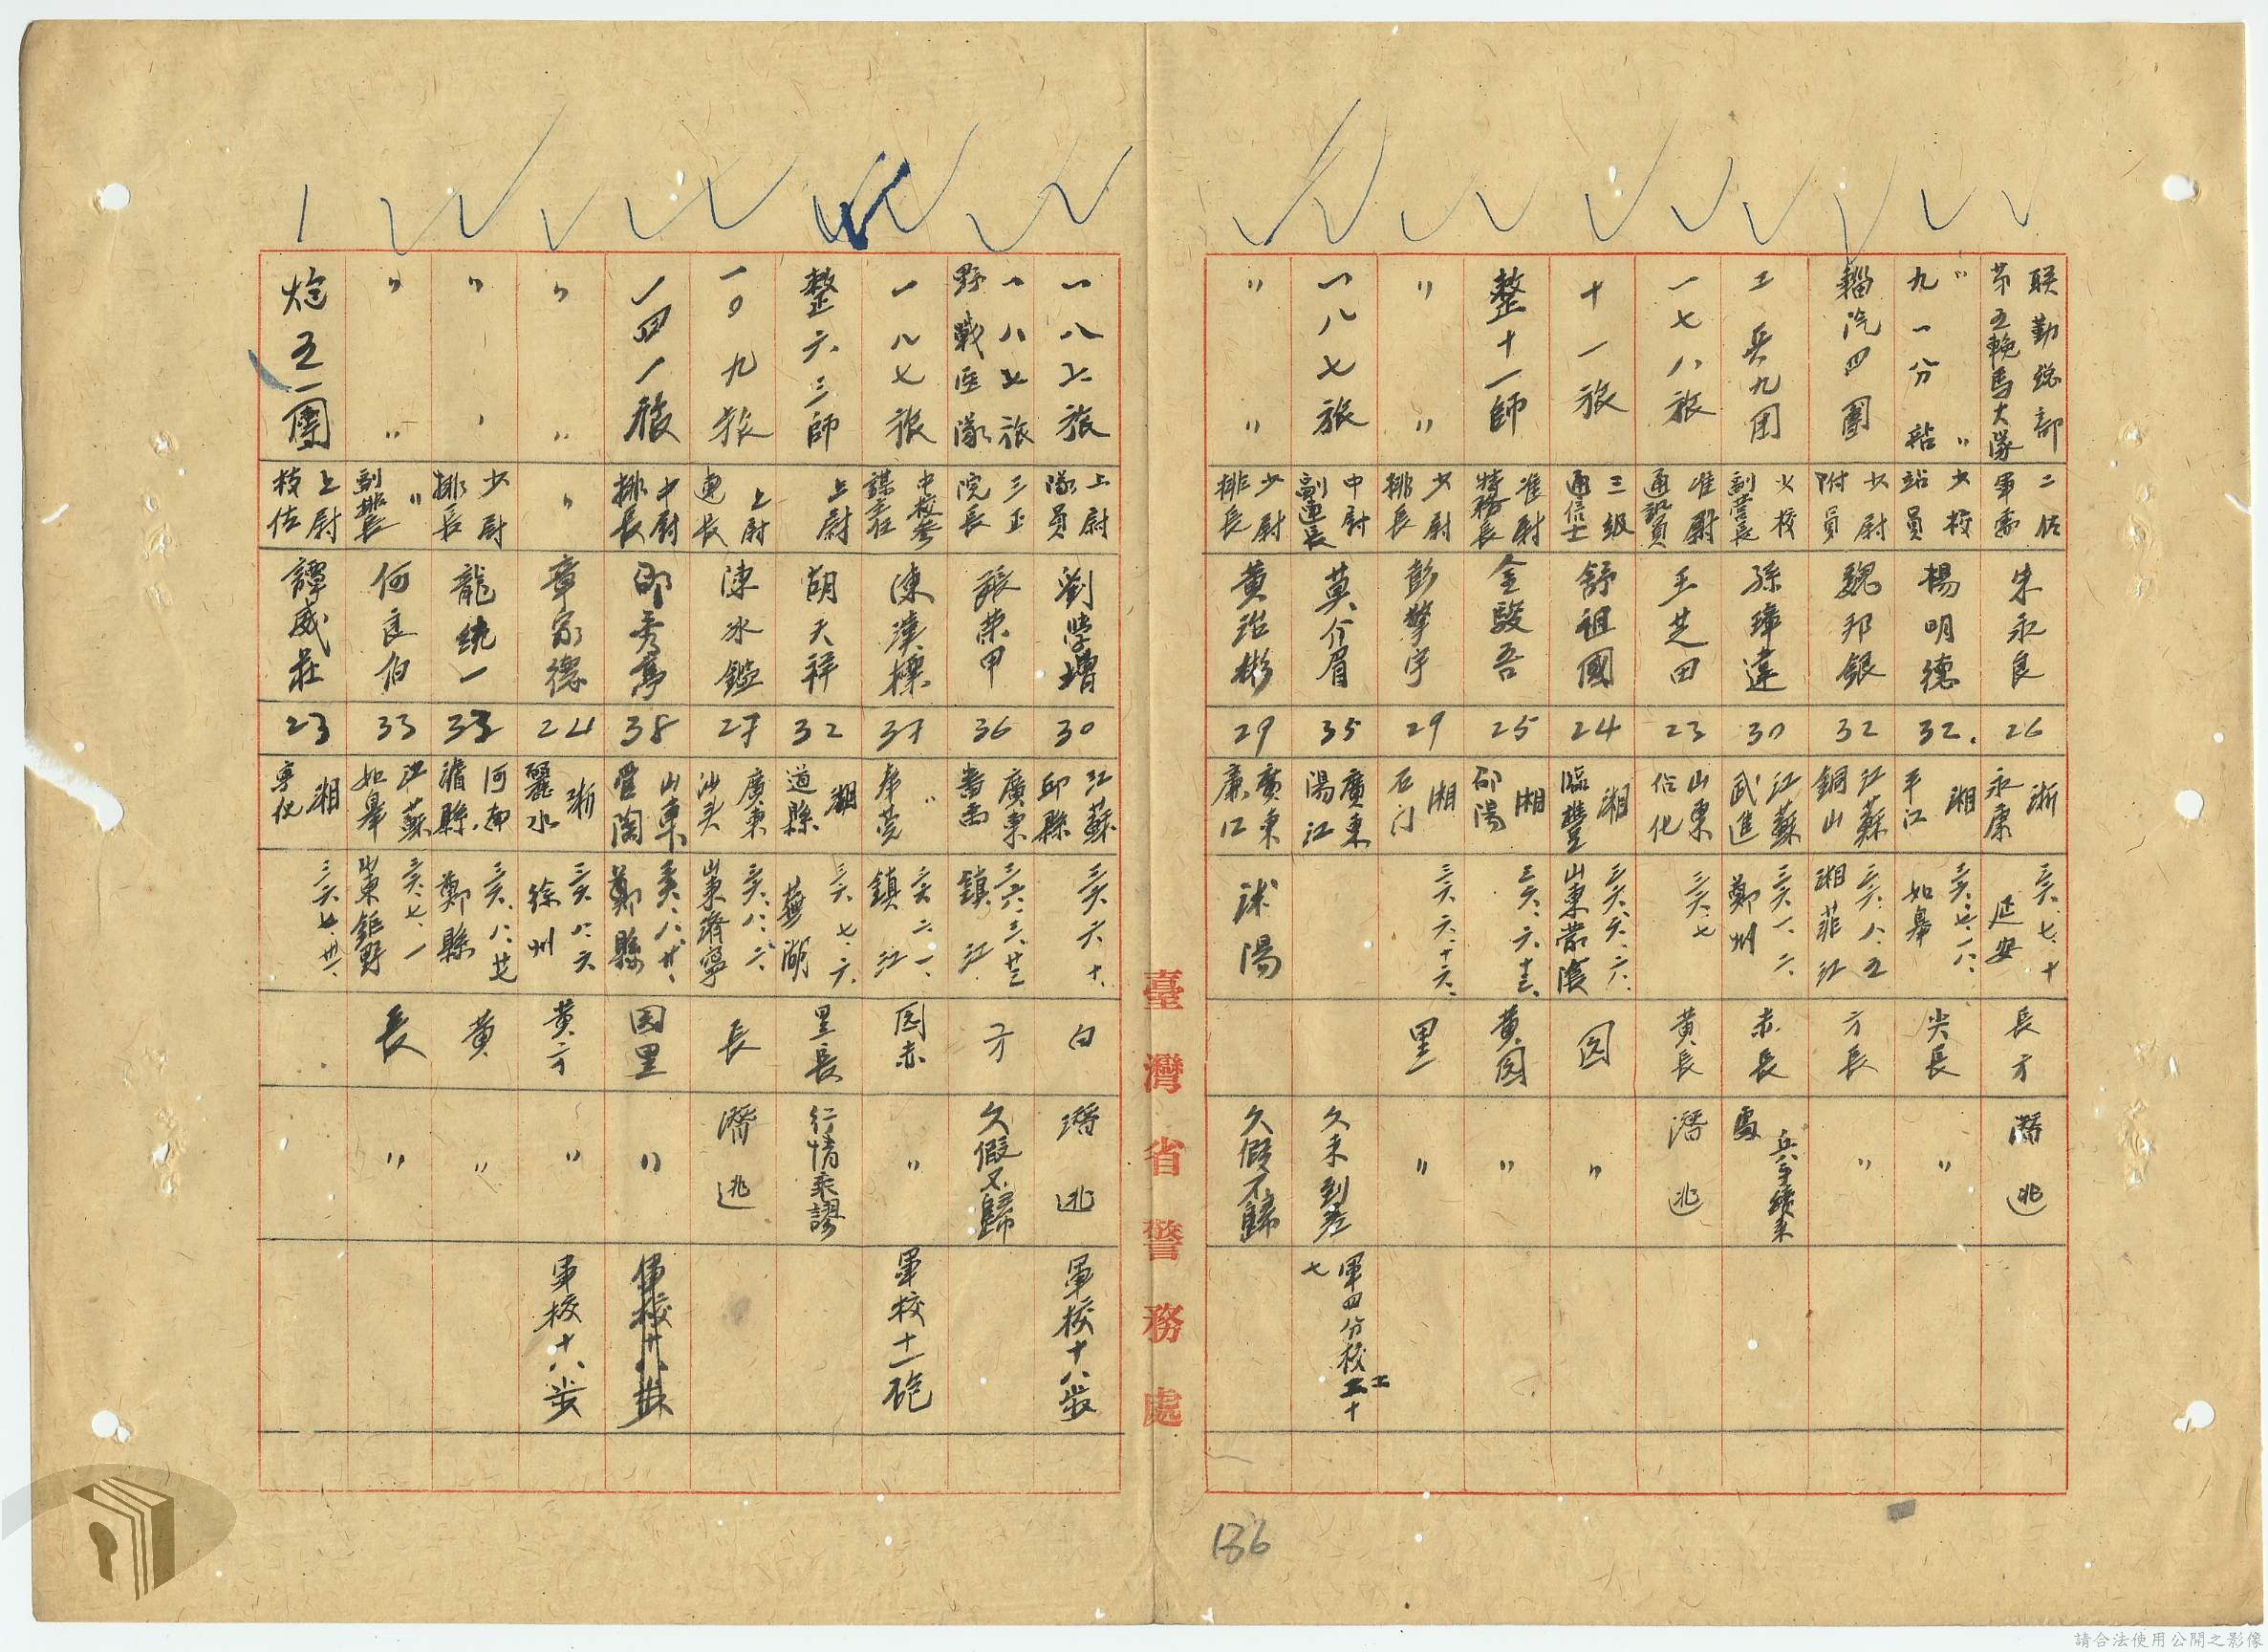 联勤總部第五輓馬大隊 二佐軍需 朱永良 26 浙永康 三六.七.十延安 長方 潛逃
〃〃九一分站 少校站員 楊明德 32. 湘平江 三六.七.一八.如皋 尖長 〃
輜汽四團 少尉附員 魏邦銀 32 江蘇銅山 三六.八.五湘菲江 方長 〃
工兵九团 少校副营長 孫璋達 30 江蘇武進 三六.一.二.鄭州 赤長
一七八旅 准尉通訊員 王芝田 23 山東 三六.七 黄長 潛逃
十一旅 三级通信士 舒祖國 24 湘臨澧 三六.六.六.山東蒙陰 园 〃
整十一師 准尉特務長 金駿吾 25 湘邵陽 三六.六.十三. 黄园 〃
〃〃 少尉排長 彭擎宇 29 湘石门 三六.六.十六. 里 〃
一八七旅 中尉副連長 莫介眉 35 廣東陽江 久未到差 軍四分校
〃〃 少尉排長 黄治彬 29 廣東廉江 沭陽 久假不歸
臺灣省警務處
一八七旅 上尉隊員 劉學增 30 江蘇邱縣 三六.六.十. 白 潛逃 軍校十八步
一八七旅野戰医隊 三正院長 張荣甲 36 廣東番禺 三六.三.廿三鎮江 方 久假不歸
一八七旅 中校参謀主任 陳漢標 37 〃東莞 三六.六.一.鎮江 园赤 〃 軍校十一砲
整六三師 上尉 胡天祥 32 湘道縣 三六.七.六.蕪湖 里長 行情乖謬
一〇九旅 上尉連長 陳冰鑑 27 廣東汕头 三六.八.六.山東濟寧 長 潛逃
一四一旅 中尉排長 邵秀亭 38 山東舘陶 三六.八.廿.鄭縣 园里 〃 軍校十八步
〃〃 〃 章家德 24 浙麗水 三六.八.六徐州 黄方 〃 軍校十八步
〃〃 少尉排長 龍統一 33 河南濬縣. 三六.八.廿七鄭縣 黄 〃
〃〃 〃副排長 何良伯 33 江蘇如皋 三六.七.一山東鉅野 長 〃
炮五一團 上尉技佐 譚威莊 23 湘 三六.七.廿一.
136
請合法使用公開之影像